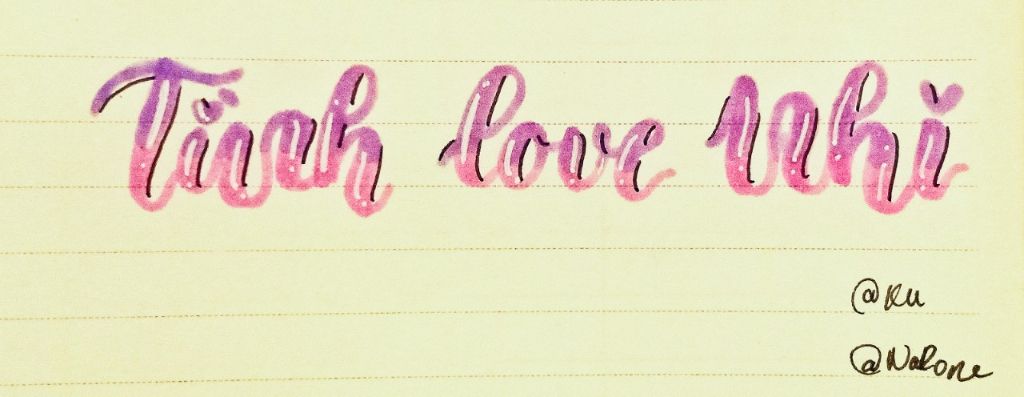 Tinh love Nhi
@KU
@NaLone